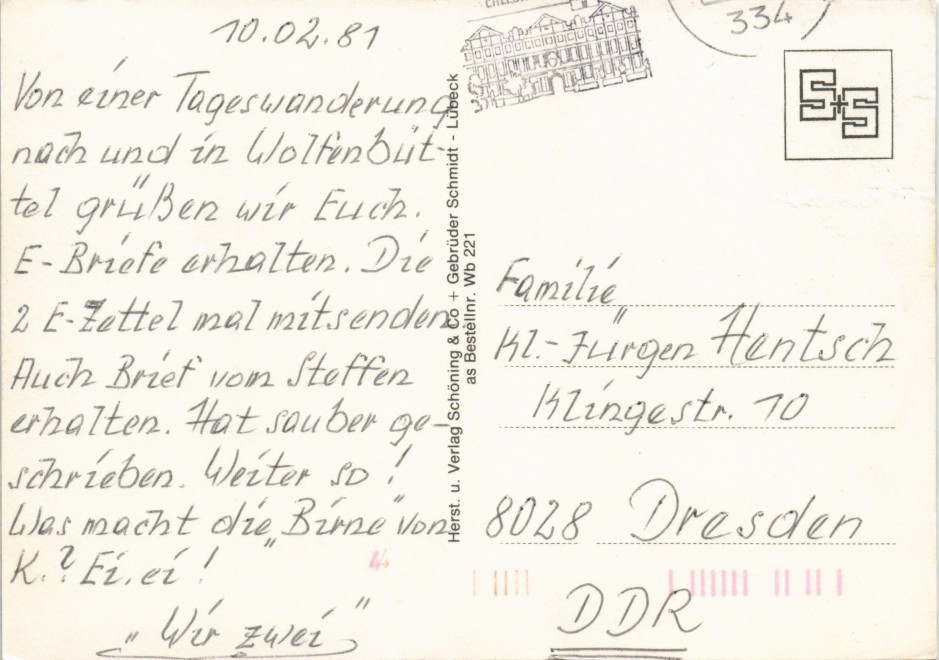 10.02.81
Von einer Tageswanderung
nach und in Wolfenbüt-
tel grüßen wir Euch.
E-Briefe erhalten. Die
2 E-Zettel mal mitsenden.
Auch Brief vom Steffen
erhalten. Hat sauber ge-
schrieben. Weiter so!
Was macht die „Birne" von
K.? Ei, ei!
„Wir zwei"
Herst. u. Verlag Schöning & Co + Gebrüder Schmidt - Lübeck
as Bestellnr. Wb 221
334
S+S
Familie
Kl.-Jürgen Hentsch
Klingestr. 10
8028 Dresden
DDR